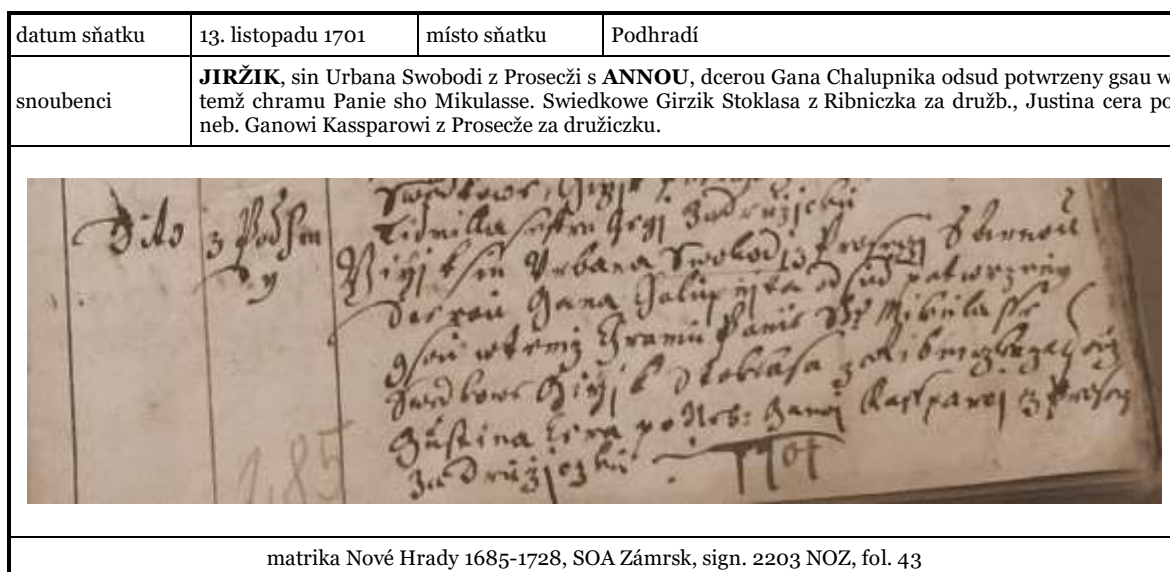 datum sňatku 13. listopadu 1701 místo sňatku Podhradí
snoubenci
JIRŽIK, sin Urbana Swobodi z Prosecži s ANNOU, dcerou Gana Chalupnika odsud potwrzeny gsau w
temž chramu Panie sho Mikulasse. Swiedkowe Girzik Stoklasa z Ribniczka za družb., Justina cera po
neb. Ganowi Kassparowi z Prosecže za družiczku.
Dito z Podhra
dy
Lidmilla sestra Gegj za družicku
Girzjk sin Urbana Swobodj z Proseczj s Annou
dcerou Gana Halupnjka odsud potwrzeny
gsau w temž Chramu Panie Sho Mikulasse
Swedkowe Girzjk Stoklasa z Ribniczka
Justina Cera po Neb: Ganoj Kassparoj z Prosecz
za družjczku
1701
1685
matrika Nové Hrady 1685-1728, SOA Zámrsk, sign. 2203 NOZ, fol. 43